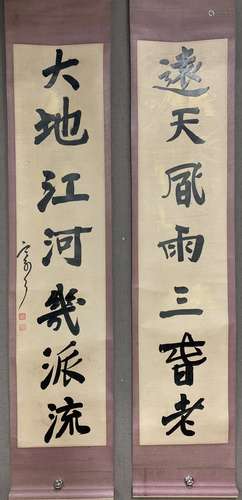 遠天風雨三春老
大地江河幾派流